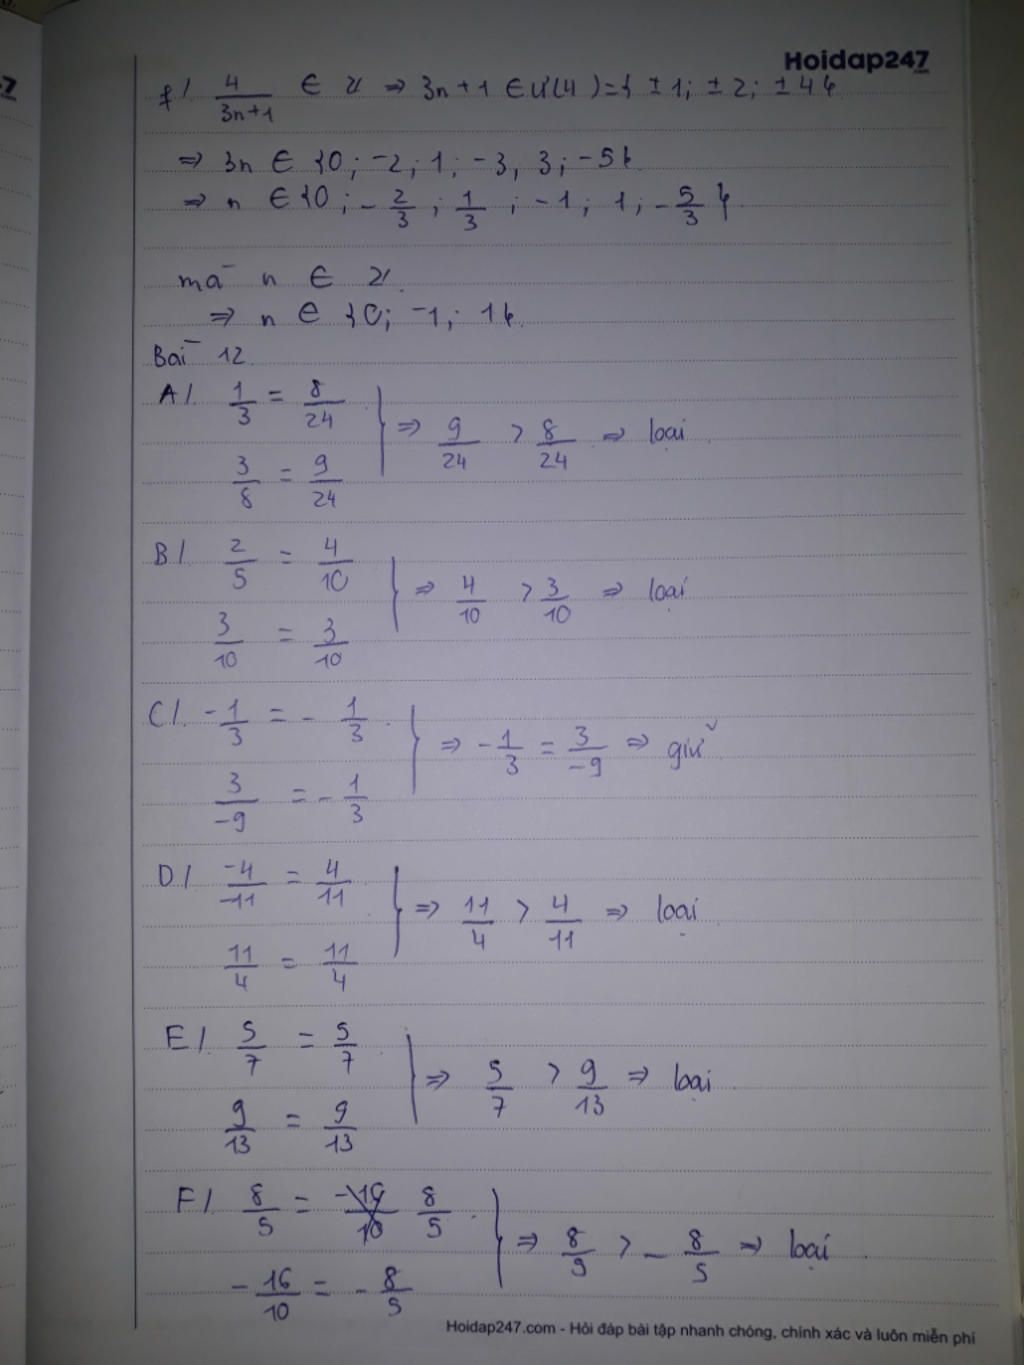 Hoidap247
f/ 4/(3n+1) ∈ Z ⇒ 3n+1 ∈ Ư(4) = { ±1; ±2; ±4 }
⇒ 3n ∈ {0; -2; 1; -3, 3; -5}
⇒ n ∈ {0; -2/3; 1/3; -1; 1; -5/3}
mà n ∈ Z
⇒ n ∈ {0; -1; 1}
Bài 12
A/. 1/3 = 8/24
3/8 = 9/24
⇒ 9/24 > 8/24 ⇒ loại
B/. 2/5 = 4/10
3/10 = 3/10
⇒ 4/10 > 3/10 ⇒ loại
C/. -1/3 = - 1/3
3/-9 = - 1/3
⇒ - 1/3 = 3/-9 ⇒ giữ
D/ -4/-11 = 4/11
11/4 = 11/4
⇒ 11/4 > 4/11 ⇒ loại
E/. 5/7 = 5/7
9/13 = 9/13
⇒ 5/7 > 9/13 ⇒ loại
F/. 8/5 = 8/5
- 16/10 = - 8/5
⇒ 8/5 > - 8/5 ⇒ loại
Hoidap247.com - Hỏi đáp bài tập nhanh chóng, chính xác và luôn miễn phí